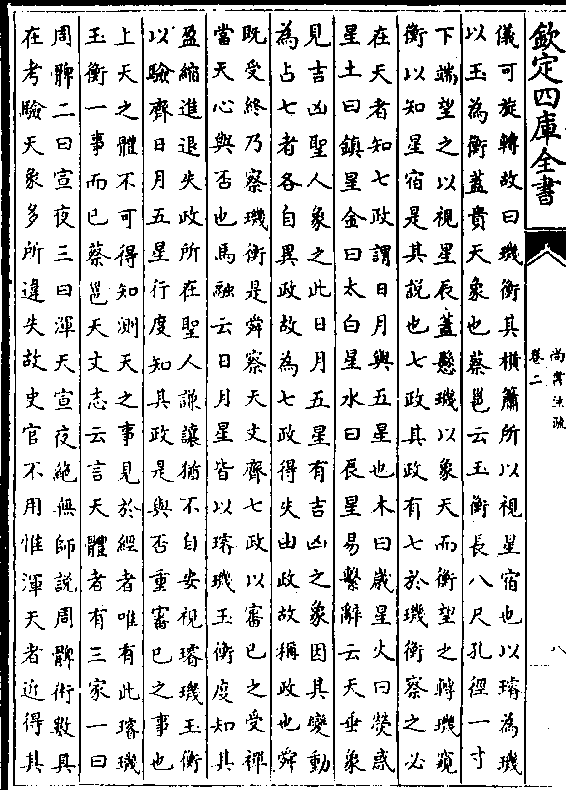 欽定四庫全書
尚書注疏
卷二
八
儀可旋轉故曰璣衡其橫簫所以視星宿也以璿為璣
以玉為衡蓋貴天象也蔡邕云玉衡長八尺孔徑一寸
下端望之以視星辰蓋懸璣以象天而衡望之轉璣窺
衡以知星宿是其說也七政其政有七於璣衡察之必
在天者知七政謂日月與五星也木曰歲星火曰熒惑
星土曰鎮星金曰太白星水曰辰星易繫辭云天垂象
見吉凶聖人象之此日月五星有吉凶之象因其變動
為占七者各自異政故為七政得失由政故稱政也舜
既受終乃察璣衡是舜察天文齊七政以審已之受禪
當天心與否也馬融云日月星皆以璿璣玉衡度知其
盈縮進退失政所在聖人謙讓猶不自安視璿璣玉衡
以驗齊日月五星行度知其政是與否重審已之事也
上天之體不可得知測天之事見於經者唯有此璿璣
玉衡一事而已蔡邕天文志云言天體者有三家一曰
周髀二曰宣夜三曰渾天宣夜絕無師說周髀術數具
在考驗天象多所違失故史官不用惟渾天者近得其